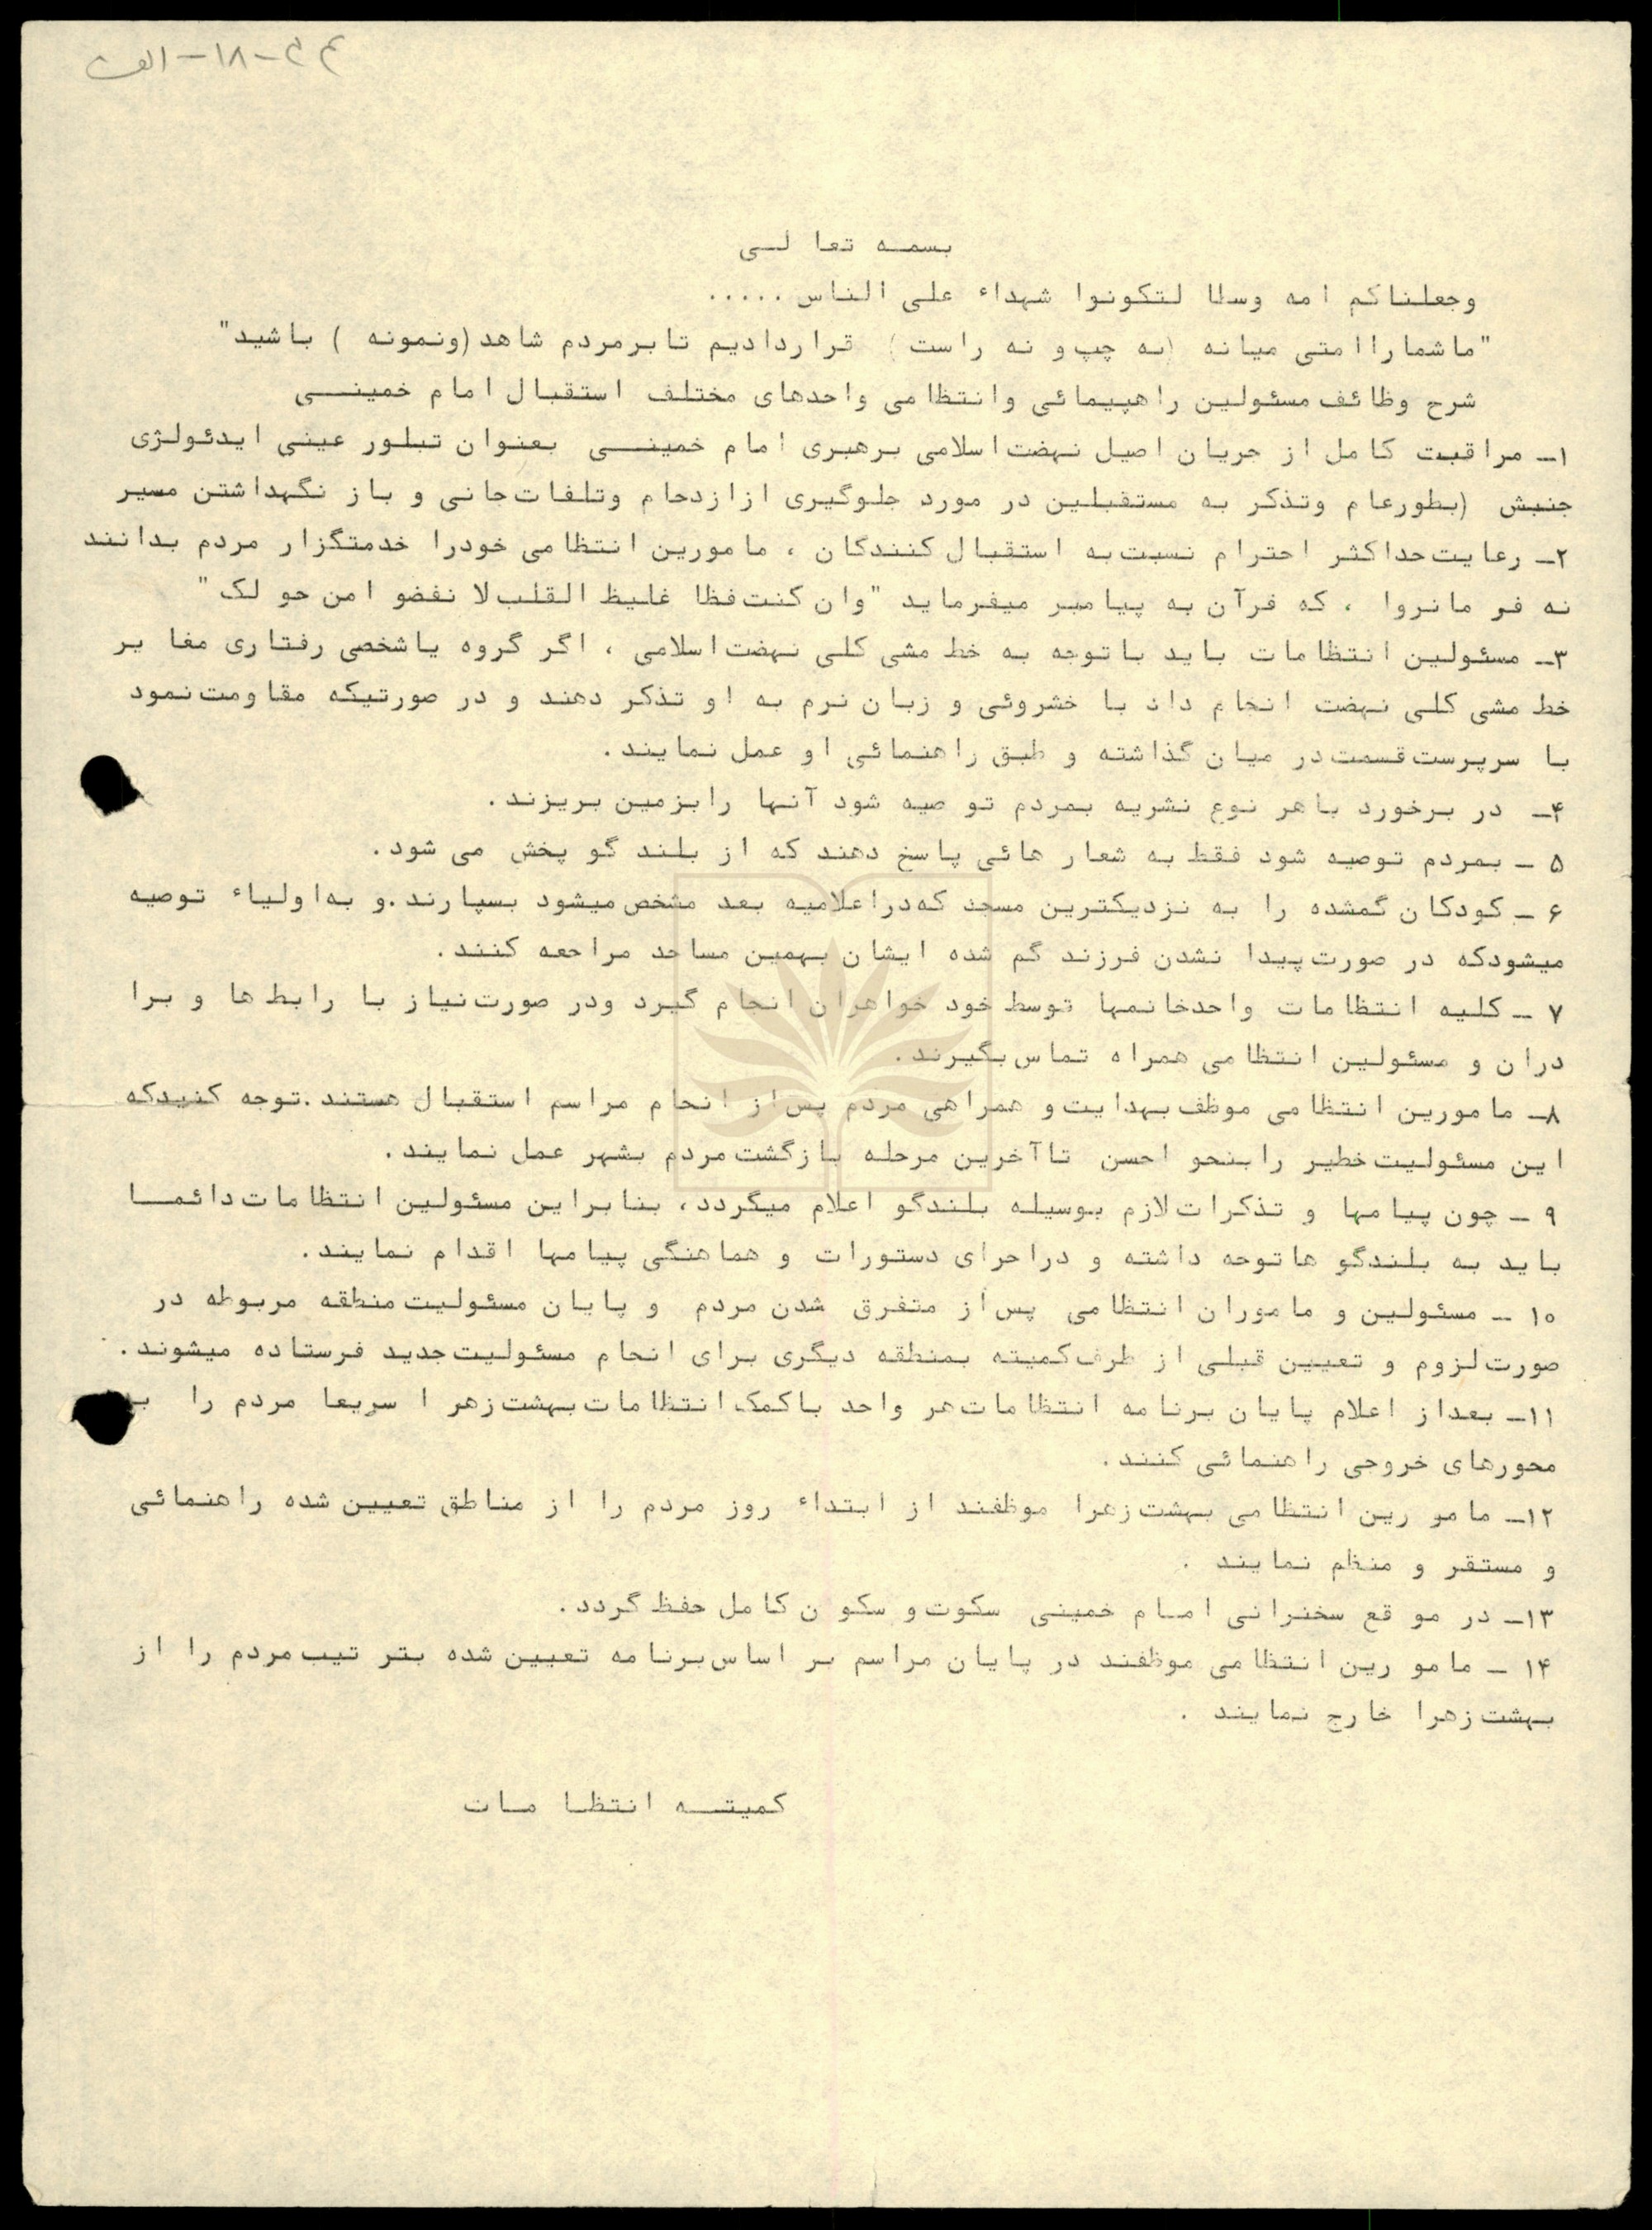 م د - ۱۸ - الف
بسمه تعالی
وجعلناکم امه وسطا لتکونوا شهداء علی الناس .....
"ماشماراامتی میانه (نه چپ و نه راست) قراردادیم تابرمردم شاهد (ونمونه ) باشید"
شرح وظائف مسئولین راهپیمائی وانتظامی واحدهای مختلف استقبال امام خمینی
۱ـ مراقبت کامل از جریان اصیل نهضت اسلامی برهبری امام خمینی بعنوان تبلور عینی ایدئولژی
جنبش (بطورعام وتذکر به مستقبلین در مورد جلوگیری ازازدحام وتلفات جانی و باز نگهداشتن مسیر
۲ـ رعایت حداکثر احترام نسبت به استقبال کنندگان ، مامورین انتظامی خودرا خدمتگزار مردم بدانند
نه فرمانروا ، که قرآن به پیامبر میفرماید "وان کنت فظا غلیظ القلب لا نفضو امن حولک"
۳ـ مسئولین انتظامات باید باتوجه به خط مشی کلی نهضت اسلامی ، اگر گروه یاشخصی رفتاری مغایر
خط مشی کلی نهضت انجام داد با خشروئی و زبان نرم به او تذکر دهند و در صورتیکه مقاومت نمود
با سرپرست قسمت در میان گذاشته و طبق راهنمائی او عمل نمایند .
۴ـ در برخورد باهر نوع نشریه بمردم توصیه شود آنها رابزمین بریزند .
۵ ـ بمردم توصیه شود فقط به شعار هائی پاسخ دهند که از بلند گو پخش می شود .
۶ ـ کودکان گمشده را به نزدیکترین مسجد که دراعلامیه بعد مشخص میشود بسپارند .و به اولیاء توصیه
میشودکه در صورت پیدا نشدن فرزند گم شده ایشان بهمین مساجد مراجعه کنند .
۷ ـ کلیه انتظامات واحدخانمها توسط خود خواهران انجام گیرد ودر صورت نیاز با رابط ها و برا
دران و مسئولین انتظامی همراه تماس بگیرند .
۸ـ مامورین انتظامی موظف بهدایت و همراهی مردم پس از انجام مراسم استقبال هستند .توجه کنیدکه
این مسئولیت خطیر رابنحو احسن تاآخرین مرحله بازگشت مردم بشهر عمل نمایند .
۹ ـ چون پیامها و تذکرات لازم بوسیله بلندگو اعلام میگردد ، بنابراین مسئولین انتظامات دائما
باید به بلندگو هاتوجه داشته و دراجرای دستورات و هماهنگی پیامها اقدام نمایند .
۱۰ ـ مسئولین و ماموران انتظامی پس از متفرق شدن مردم و پایان مسئولیت منطقه مربوطه در
صورت لزوم و تعیین قبلی از طرف کمیته بمنطقه دیگری برای انجام مسئولیت جدید فرستاده میشوند .
۱۱ـ بعداز اعلام پایان برنامه انتظامات هر واحد باکمک انتظامات بهشت زهرا سریعا مردم را به
محورهای خروجی راهنمائی کنند .
۱۲ـ مامورین انتظامی بهشت زهرا موظفند از ابتداء روز مردم را از مناطق تعیین شده راهنمائی
و مستقر و منظم نمایند .
۱۳ـ در موقع سخنرانی امام خمینی سکوت و سکون کامل حفظ گردد .
۱۴ ـ مامورین انتظامی موظفند در پایان مراسم بر اساس برنامه تعیین شده بترتیب مردم را از
بهشت زهرا خارج نمایند .
کمیته انتظامات